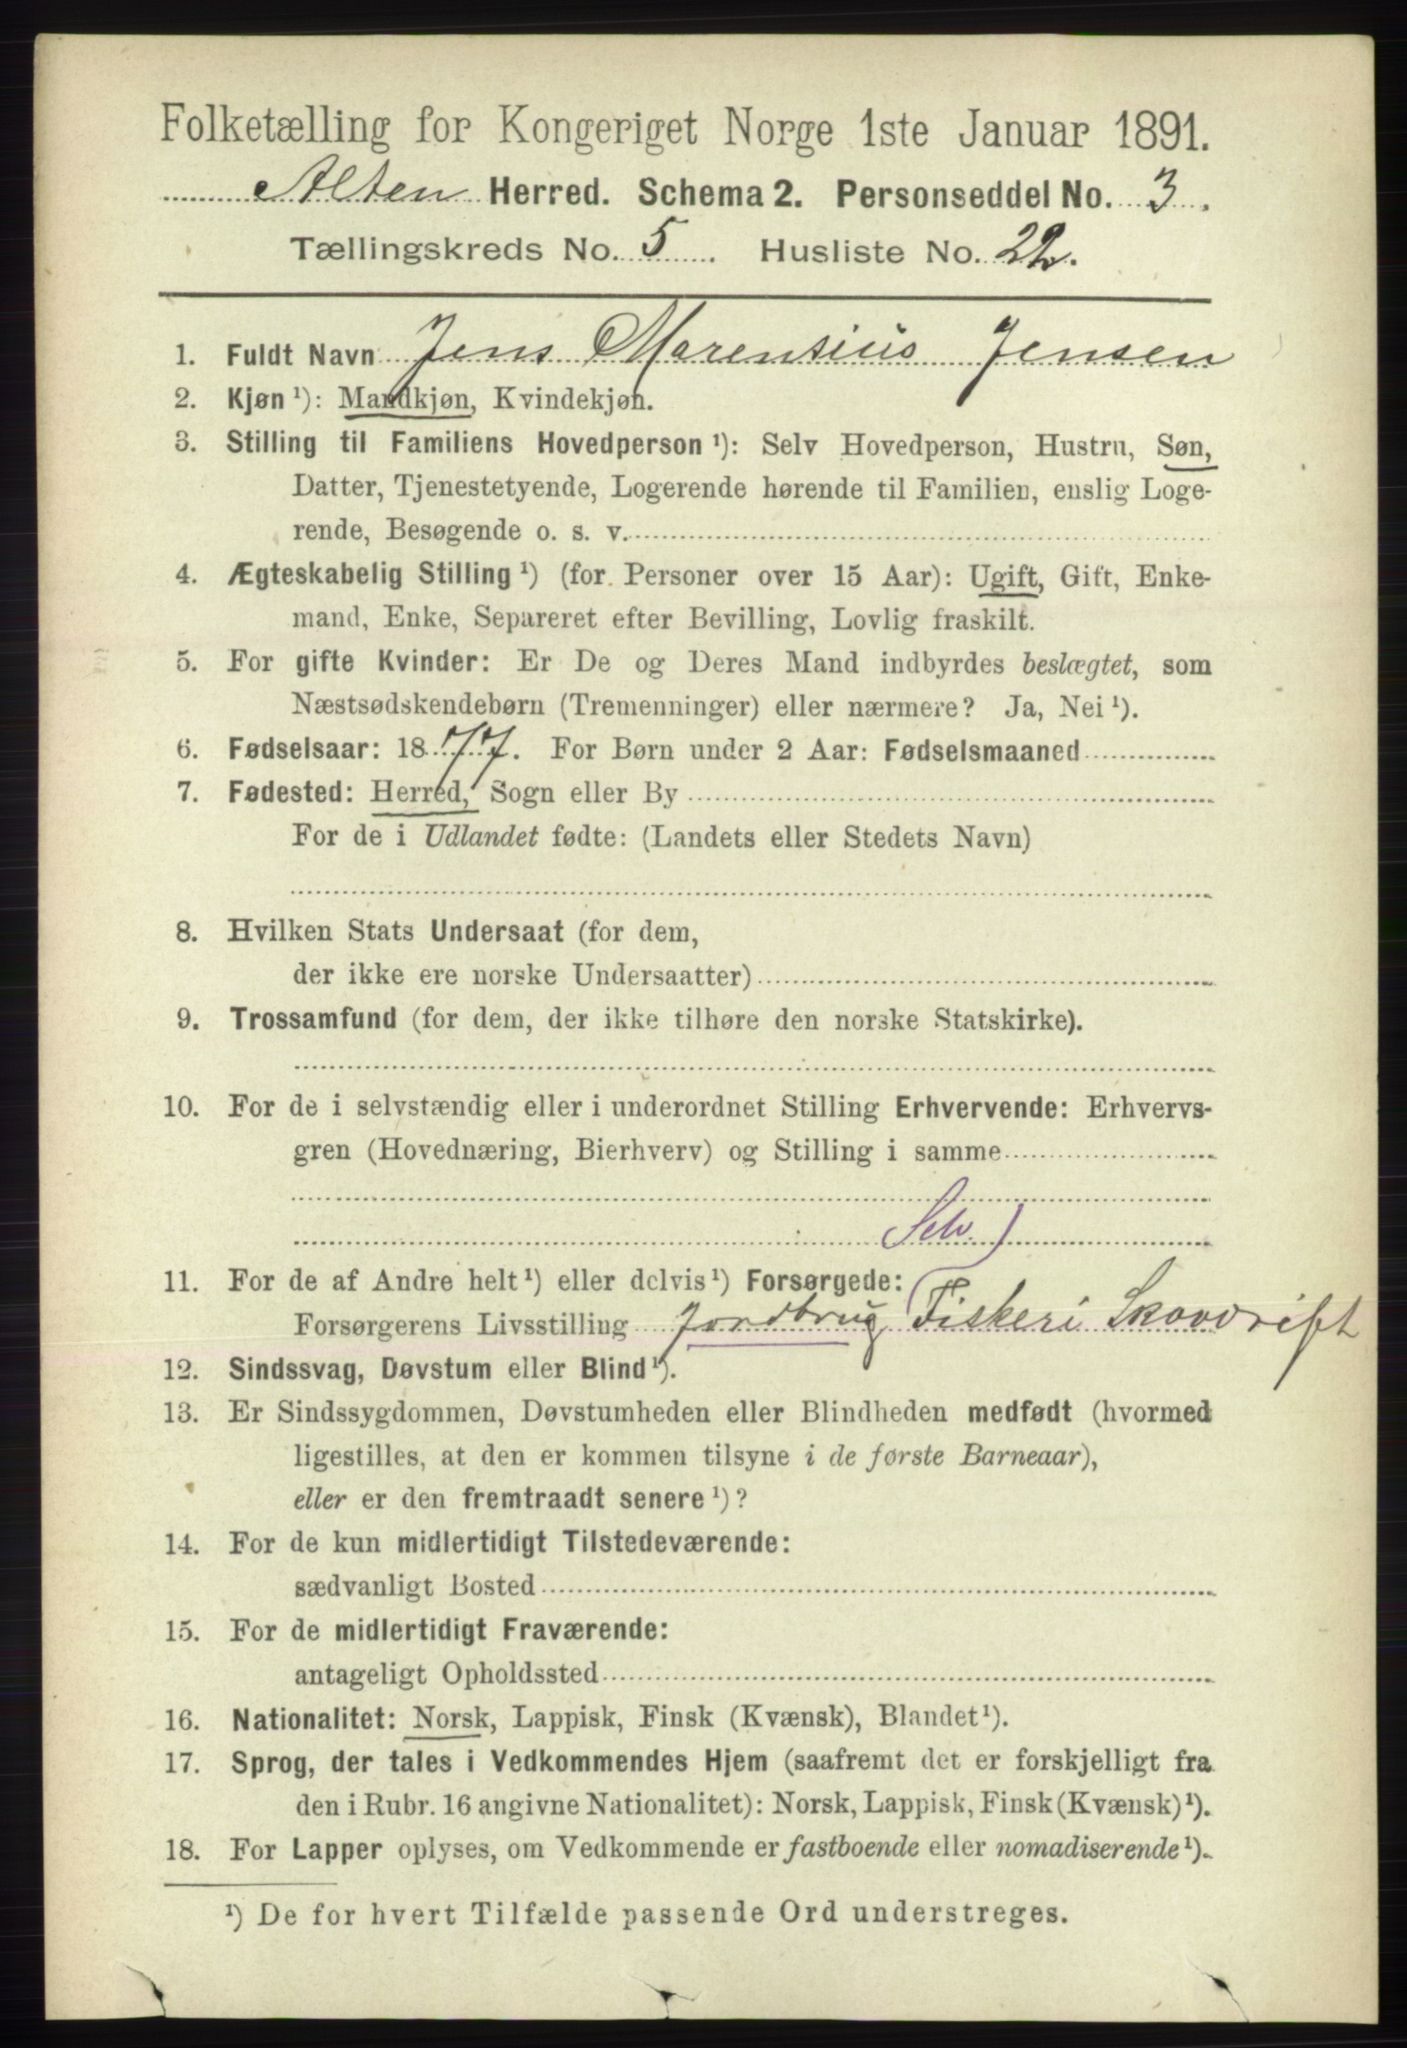 Folketælling for Kongeriget Norge 1ste Januar 1891.
Alten Herred. Schema 2. Personseddel No. 3.
Tællingskreds No. 5. Husliste No. 22.
1. Fuldt Navn Jens Marensius Jensen
2. Kjøn ¹): Mandkjøn, Kvindekjøn.
3. Stilling til Familiens Hovedperson ¹): Selv Hovedperson, Hustru, Søn,
Datter, Tjenestetyende, Logerende hørende til Familien, enslig Loge-
rende, Besøgende o. s. v.
4. Ægteskabelig Stilling ¹) (for Personer over 15 Aar): Ugift, Gift, Enke-
mand, Enke, Separeret efter Bevilling, Lovlig fraskilt.
5. For gifte Kvinder: Er De og Deres Mand indbyrdes beslægtet, som
Næstsødskendebørn (Tremenninger) eller nærmere? Ja, Nei ¹).
6. Fødselsaar: 1877. For Børn under 2 Aar: Fødselsmaaned
7. Fødested: Herred, Sogn eller By
For de i Udlandet fødte: (Landets eller Stedets Navn)
8. Hvilken Stats Undersaat (for dem,
der ikke ere norske Undersaatter)
9. Trossamfund (for dem, der ikke tilhøre den norske Statskirke).
10. For de i selvstændig eller i underordnet Stilling Erhvervende: Erhvervs-
gren (Hovednæring, Bierhverv) og Stilling i samme
Selv.)
11. For de af Andre helt ¹) eller delvis ¹) Forsørgede:
Forsørgerens Livsstilling Jordbrug Fiskeri Skovdrift
12. Sindssvag, Døvstum eller Blind ¹).
13. Er Sindssygdommen, Døvstumheden eller Blindheden medfødt (hvormed
ligestilles, at den er kommen tilsyne i de første Barneaar),
eller er den fremtraadt senere ¹)?
14. For de kun midlertidigt Tilstedeværende:
sædvanligt Bosted
15. For de midlertidigt Fraværende:
antageligt Opholdssted
16. Nationalitet: Norsk, Lappisk, Finsk (Kvænsk), Blandet ¹).
17. Sprog, der tales i Vedkommendes Hjem (saafremt det er forskjelligt fra
den i Rubr. 16 angivne Nationalitet): Norsk, Lappisk, Finsk (Kvænsk) ¹).
18. For Lapper oplyses, om Vedkommende er fastboende eller nomadiserende ¹).
¹) De for hvert Tilfælde passende Ord understreges.